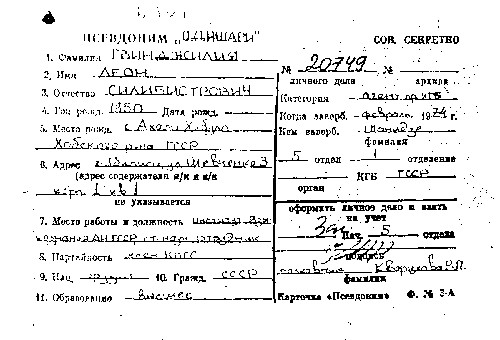 ПСЕВДОНИМ „ОДИШАРИ"
СОВ. СЕКРЕТНО
1. Фамилия ГВИНДЖИЛИЯ
2. Имя ЛЕОН
3. Отчество СИЛИБИСТРОВИЧ
4. Год рожд. 1950 Дата рожд.
5. Место рожд. с.
ГССР
6. Адрес г. Тбилиси ул. Шевченко 3
(адрес содержателя я/к и к/к
корп. 1 кв 1
не указывается
7. Место работы и должность
АН ГССР ст. науч. сотрудник
8. Партийность член КПСС
9. Нац. грузин 10. Гражд. СССР
11. Образование высшее
№ 20749 №
личного дела архива
Категория агент КГБ
Когда заверб. февраль 1974 г.
Кем заверб.
фамилия
5 отдел 1 отделение
КГБ ГССР
орган
оформить личное дело и взять
на учет
Нач. 5 отдела
подпись
полковник
фамилия
Карточка «Псевдоним» Ф. № 3-А